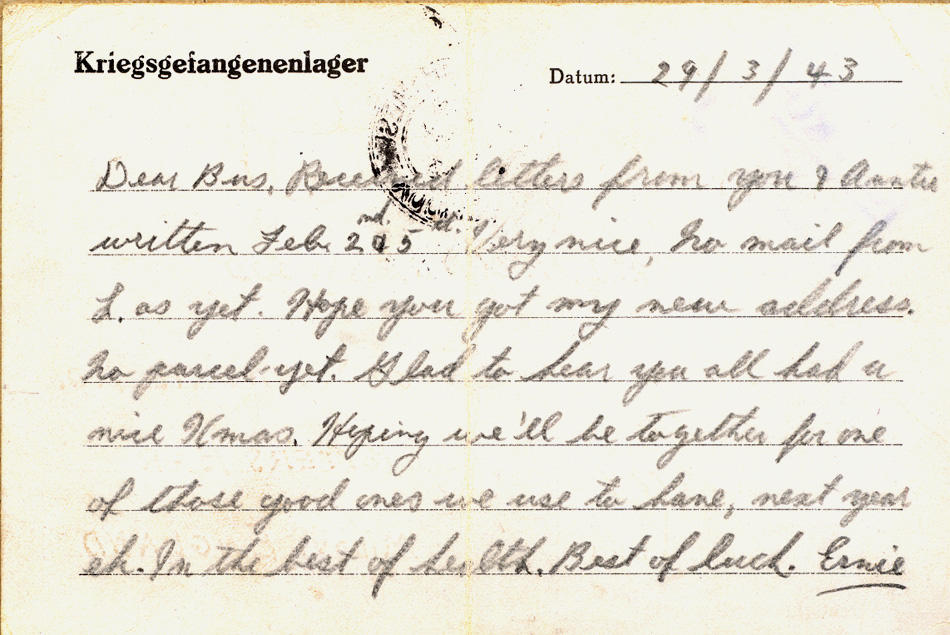 Kriegsgefangenenlager
Datum: 29/3/43
Dear Bus, Received letters from you & Auntie
written Feb. 2nd. & 5th. Very nice, no mail from
L. as yet. Hope you got my new address.
No parcel yet. Glad to hear you all had a
nice Xmas. Hoping we'll be together for one
of those good ones we use to have, next year
eh. In the best of health. Best of luck. Ernie